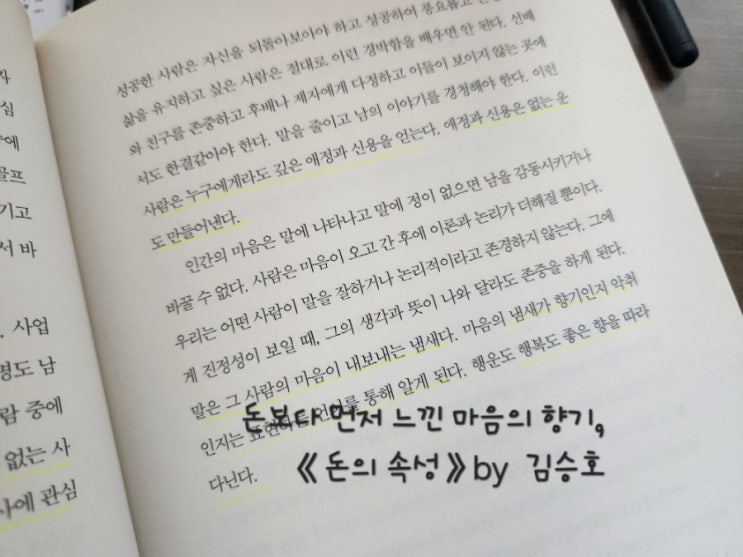 성공한 사람은 자신을 되돌아보아야 하고 성공하여 풍요롭고
삶을 유지하고 싶은 사람은 절대로 이런 경박함을 배우면 안 된다. 선배
와 친구를 존중하고 후배나 제자에게 다정하고 이들이 보이지 않는 곳에
서도 한결같아야 한다. 말을 줄이고 남의 이야기를 경청해야 한다. 이런
사람은 누구에게라도 깊은 애정과 신용을 얻는다. 애정과 신용은 없는 운
도 만들어낸다.
인간의 마음은 말에 나타나고 말에 정이 없으면 남을 감동시키거나
바꿀 수 없다. 사람은 마음이 오고 간 후에 이론과 논리가 더해질 뿐이다.
우리는 어떤 사람이 말을 잘하거나 논리적이라고 존경하지 않는다. 그에
게 진정성이 보일 때, 그의 생각과 뜻이 나와 달라도 존중을 하게 된다.
말은 그 사람의 마음이 내보내는 냄새다. 마음의 냄새가 향기인지 악취
인지는 표현하는 언어를 통해 알게 된다. 행운도 행복도 좋은 향을 따라
다닌다.
돈보다 먼저 느낀 마음의 향기,
《돈의 속성》by 김승호
십
골프
기고
서 바
. 사업
명도 남
람 중에
없는 사
사에 관심